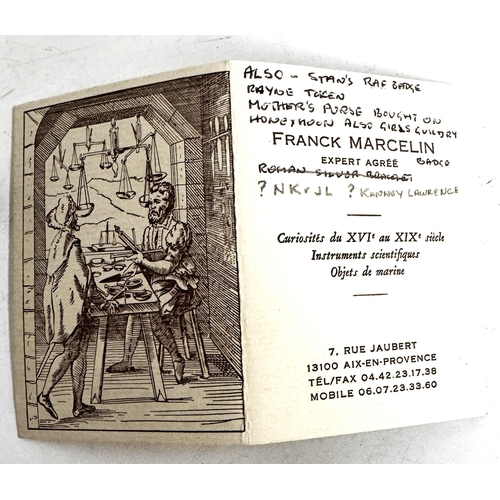 ALSO - STAN'S RAF BADGE
RAYNE TOKEN
MOTHER'S PURSE BOUGHT ON
HONEYMOON ALSO GIRLS GUILDRY
BADGE
FRANCK MARCELIN
EXPERT AGRÉÉ
ROMAN SILVER BRACELET
? NK & JL ? KHONEY LAWRENCE
Curiosités du XVIe au XIXe siècle
Instruments scientifiques
Objets de marine
7, RUE JAUBERT
13100 AIX-EN-PROVENCE
TÉL/FAX 04.42.23.17.38
MOBILE 06.07.23.33.60